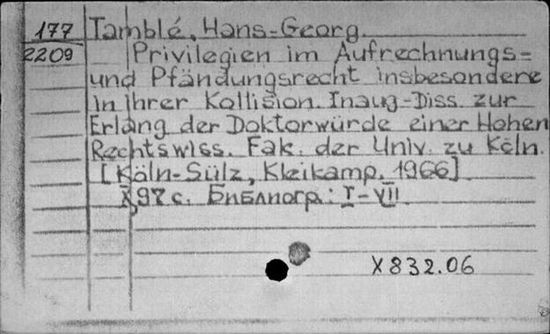 177 Tamblé, Hans-Georg.
2209 Privilegien im Aufrechnungs-
und Pfändungsrecht insbesondere
in ihrer Kollision. Inaug-Diss. zur
Erlang der Doktorwürde einer Hohen
Rechtswiss. Fak. der Univ. zu Köln.
[Köln-Sülz, Kleikamp, 1966]
X, 97 с. Библиогр.: I-VII
X832.06